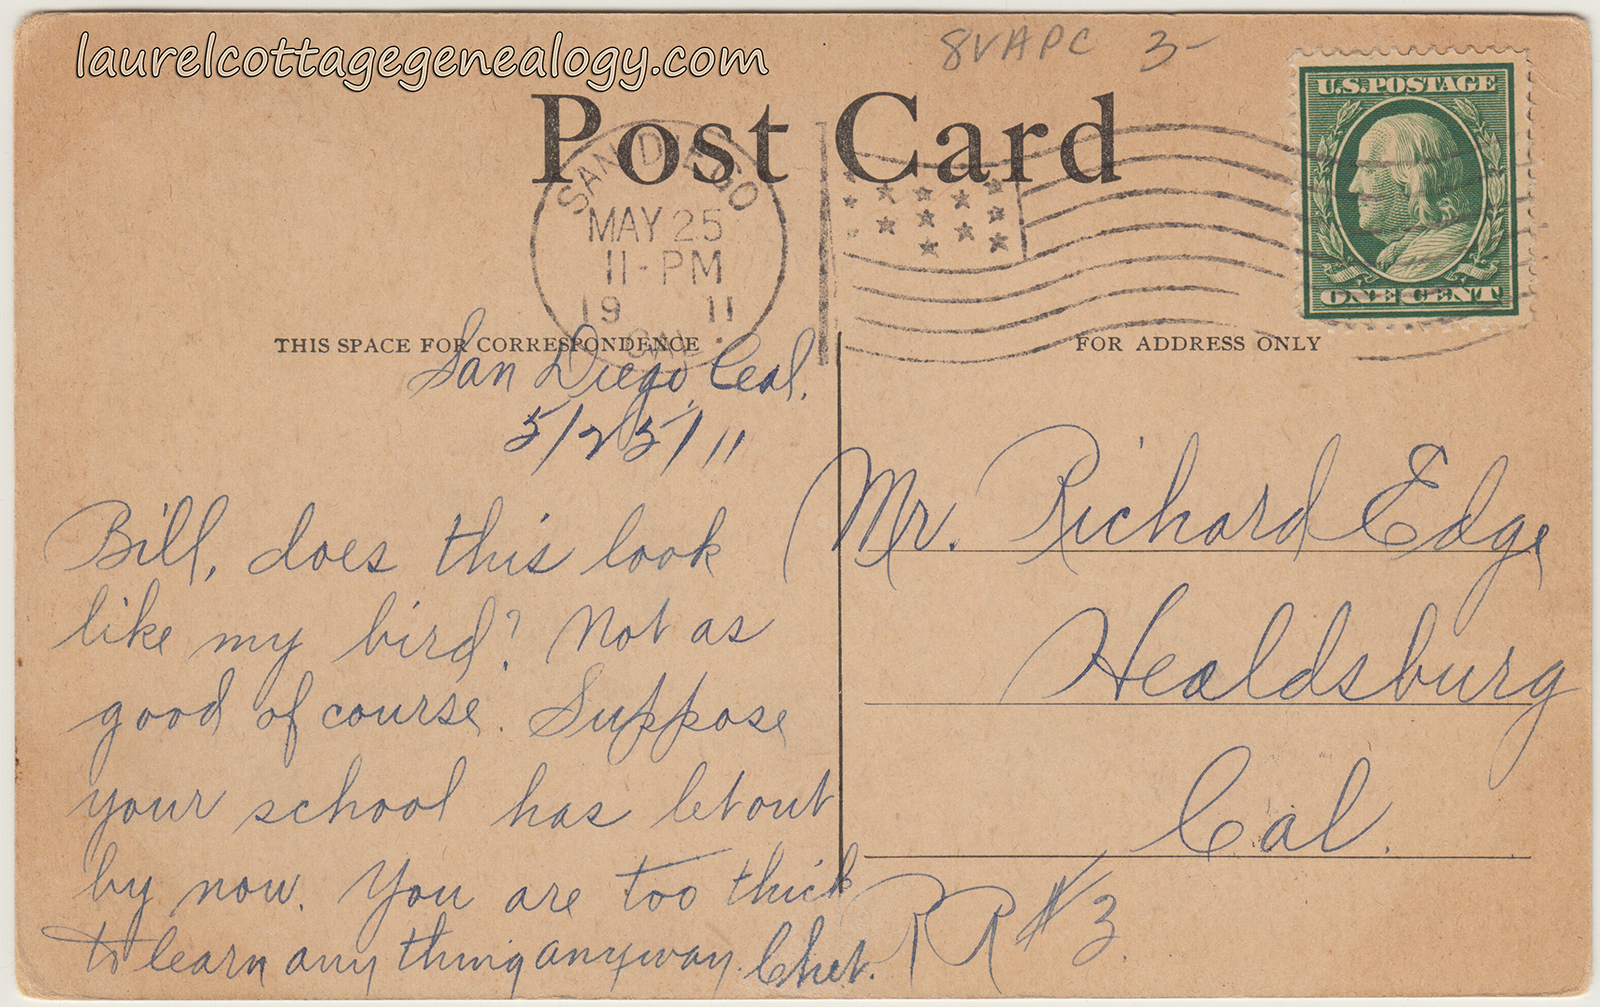 laurelcottagegenealogy.com
8VAPC 3-
Post Card
U.S. POSTAGE
ONE CENT
SAN DIEGO
MAY 25
11-PM
19 11
CAL.
THIS SPACE FOR CORRESPONDENCE
FOR ADDRESS ONLY
San Diego, Cal.
5/25/11
Bill, does this look
like my bird? Not as
good of course. Suppose
your school has let out
by now. You are too thick
to learn any thing anyway. Chet.
Mr. Richard Edge
Healdsburg
Cal.
RR #3.